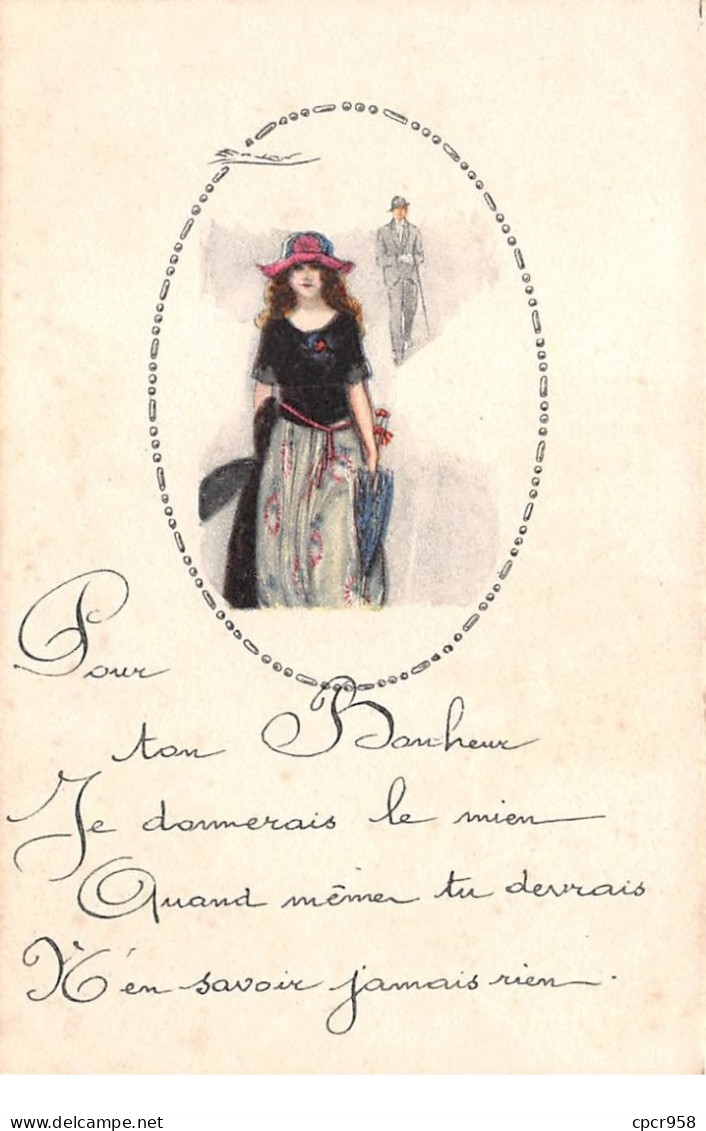 Pour
ton Bonheur
Je donnerais le mien
Quand même tu devrais
N'en savoir jamais rien.
delcampe.net
cpcr958